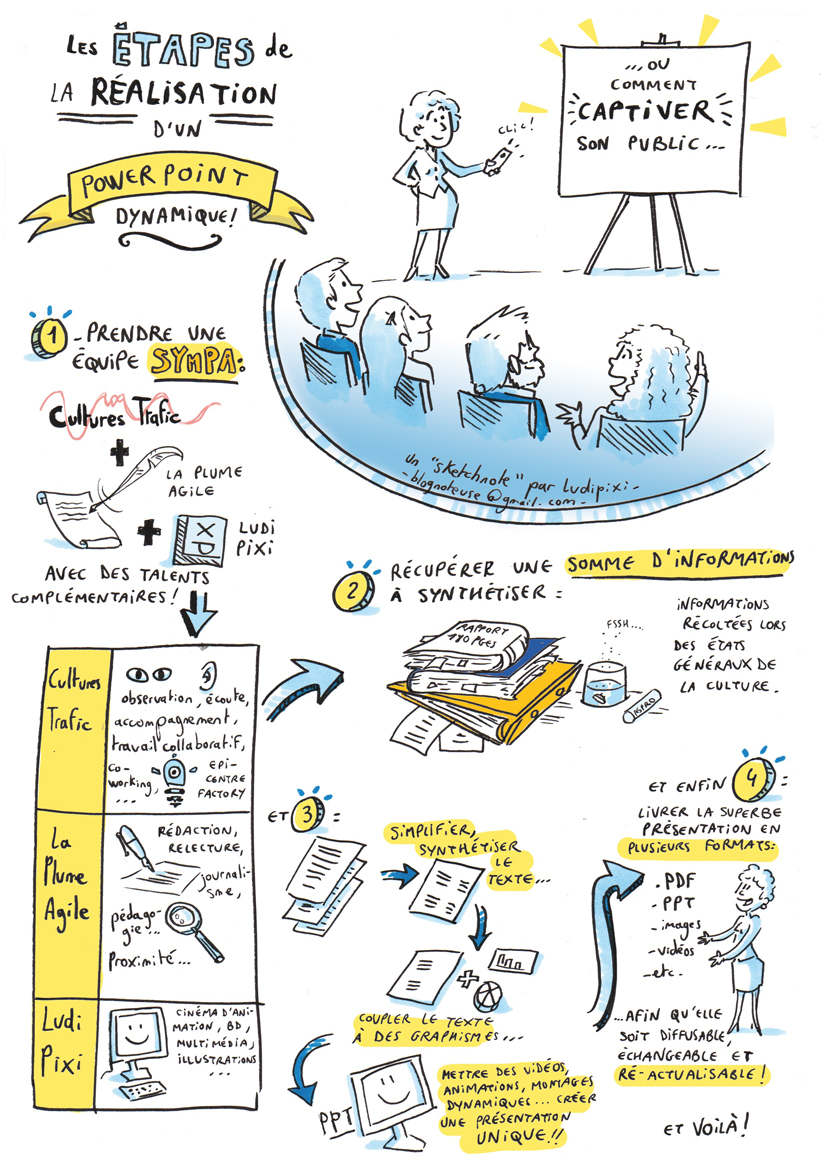 LES ÉTAPES de
LA RÉALISATION
D'UN
POWERPOINT
DYNAMIQUE!
CLIC!
...OU
COMMENT
CAPTIVER
SON PUBLIC...
un "sketchnote" par Ludipixi-
-blognoteuse@gmail.com-
1 - PRENDRE UNE
ÉQUIPE SYMPA:
Cultures Trafic
+
LA PLUME
AGILE
+
LUDI
PIXI
AVEC DES TALENTS
COMPLÉMENTAIRES!
Cultures
Trafic
observation, écoute,
accompagnement,
travail collaboratif,
co-
working,
...
EPI-
CENTRE
FACTORY
La
Plume
Agile
RÉDACTION,
RELECTURE,
journali-
sme,
pédago-
gie...
Proximité...
Ludi
Pixi
CINÉMA D'ANI-
MATION, BD,
MULTIMÉDIA,
ILLUSTRATIONS
...
2 RÉCUPÉRER UNE SOMME D'INFORMATIONS
À SYNTHÉTISER =
RAPPORT
780 PGES
FSSH....
ASPRO
INFORMATIONS
RÉCOLTÉES LORS
DES ÉTATS
GÉNÉRAUX DE
LA CULTURE.
ET 3 =
SIMPLIFIER,
SYNTHÉTISER
LE
TEXTE...
+
COUPLER LE TEXTE
À DES GRAPHISMES...
PPT
METTRE DES VIDÉOS,
ANIMATIONS, MONTAGES
DYNAMIQUES... CRÉER
UNE PRÉSENTATION
UNIQUE!!
ET ENFIN 4 =
LIVRER LA SUPERBE
PRÉSENTATION EN
PLUSIEURS FORMATS:
.PDF
-PPT
-images
-vidéos
-etc.
...AFIN QU'ELLE
SOIT DIFFUSABLE,
ÉCHANGEABLE ET
RÉ-ACTUALISABLE!
ET VOILÀ!